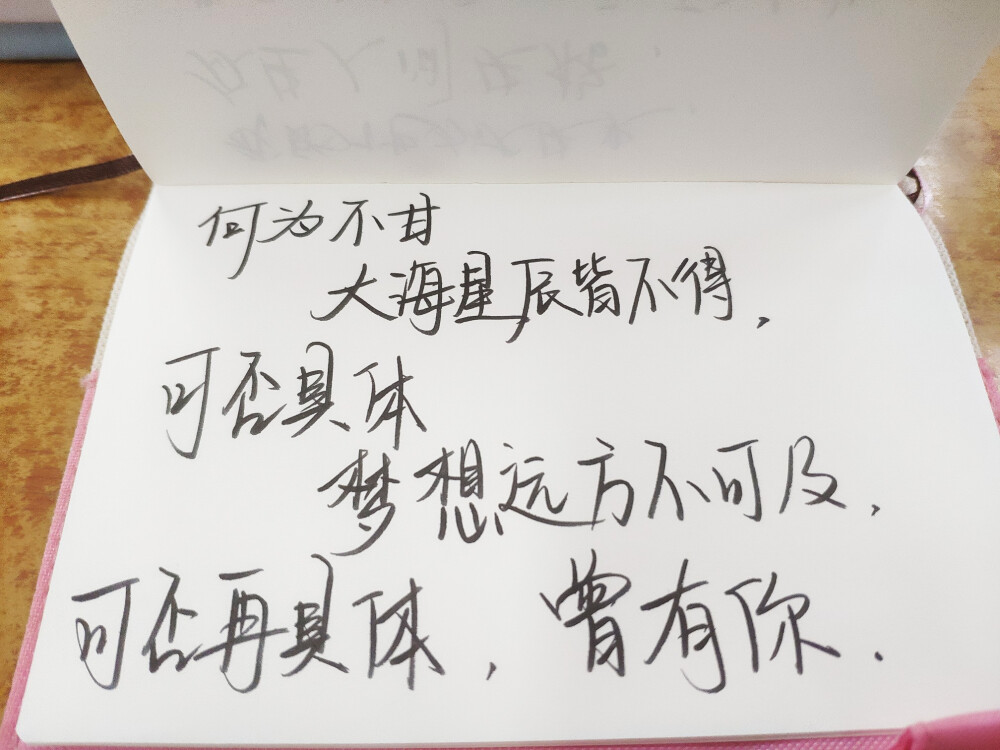 何为不甘
大海星辰皆不得,
可否具体
梦想远方不可及,
可否再具体,曾有你.